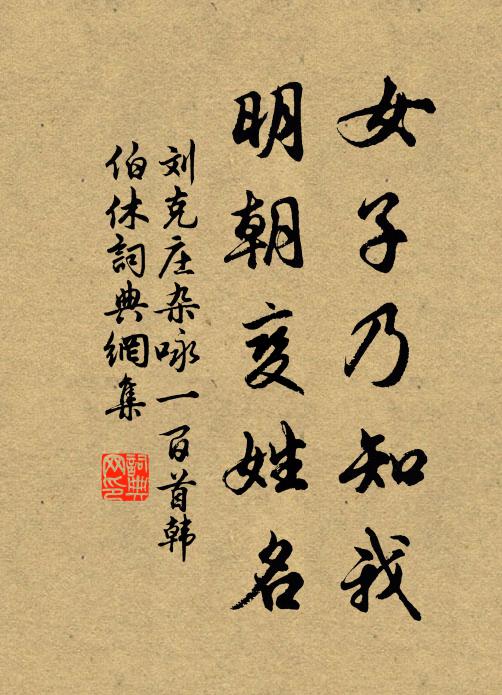 女子乃知我
明朝变姓名
刘克庄杂咏一百首韩
伯休詞典網集
詞典网印